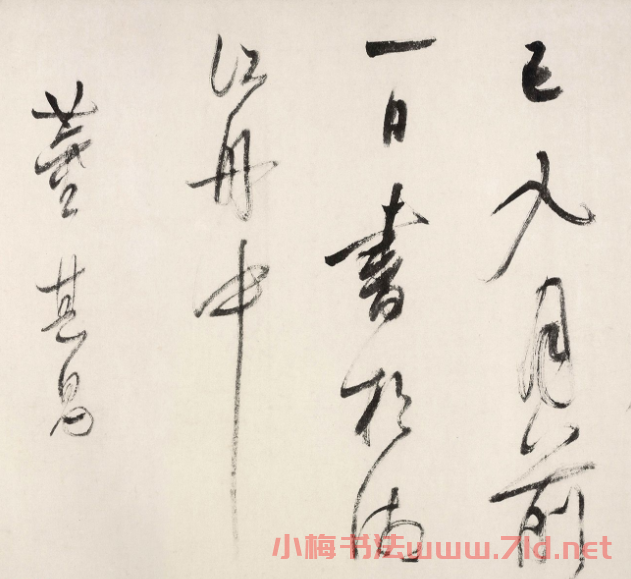 巳月前
一日書於
江舟中
董其昌
小梅书法www.7ld.net